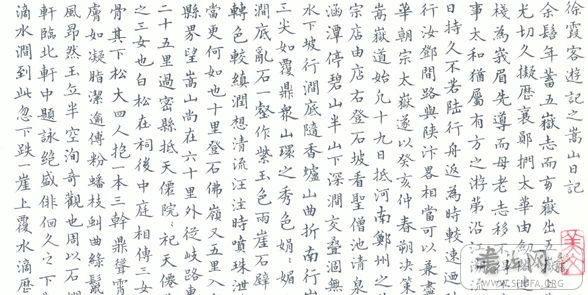 徐霞客游記之嵩山日記
余髫年蓄五嶽志而玄嶽出五
尤切久擬歷襄鄖捫太華由
棧為峩眉先導而母老志移
事太和猶屬有方之游第沿江
日持久不若陸行舟返為時較速迺
行汝鄧間路與陝汴畧相當可以兼盡
華朝宗太嶽遂以癸亥仲春朔決策
嵩嶽道始凢十九日抵河南鄭州之
宗店由店右登石坡看聖僧池清泉
涵渟碧山半山下深澗交疊涸無
水下坡行澗底隨香爐山曲折南行
三尖如覆鼎衆山環之秀色娟娟
澗底亂石一壑作紫玉色兩崖石壁
轉色較縝潤想清流汪注時噴珠泄
當更何如也十里登石佛嶺又五里入
縣界望嵩山尚在六十里外從岐路東
二十五里過密縣抵天僊院院祀天僊
之三女也白松在祠後中庭相傳三女
骨其下松大四人抱一本三幹鼎聳霄
膚如凝脂潔逾傅粉蟠枝虬曲綠鬣
風昂然玉立半空洵奇觀也周以石
軒臨北軒中題詠絕盛徘徊久之下
滴水澗到此忽下跌一崖上覆水滴歷
书法网